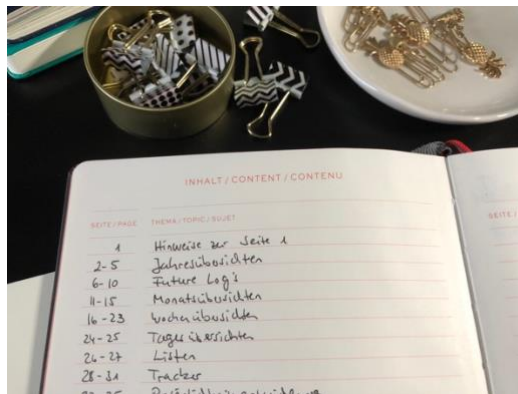 INHALT / CONTENT / CONTENU
SEITE / PAGE THEMA / TOPIC / SUJET
SEITE /
1 Hinweise zur Seite 1
2-5 Jahresübersichten
6-10 Future Log's
11-15 Monatsübersichten
16-23 Wochenübersichten
24-25 Tagesübersichten
26-27 Listen
28-31 Tracker